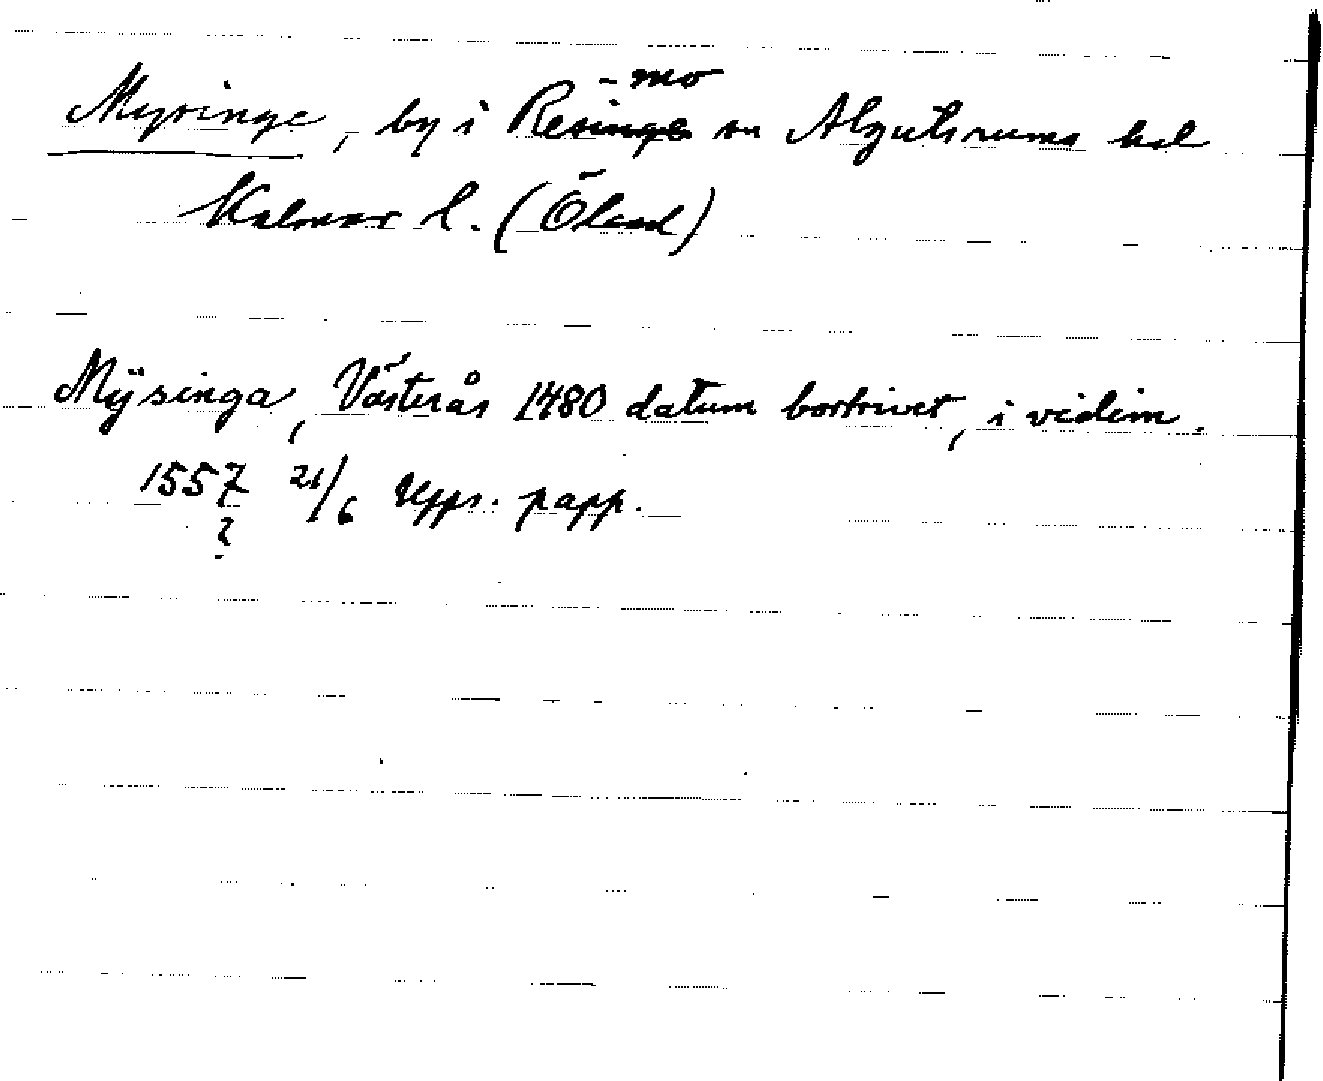 -mo
Mysinge, by i Resinge sn Algutsrums hd
Kalmar l. (Öland)
Mÿsinga, Västerås 1480 datum bortrivet, i vidim.
1557 21/6 Upps. papp.
?